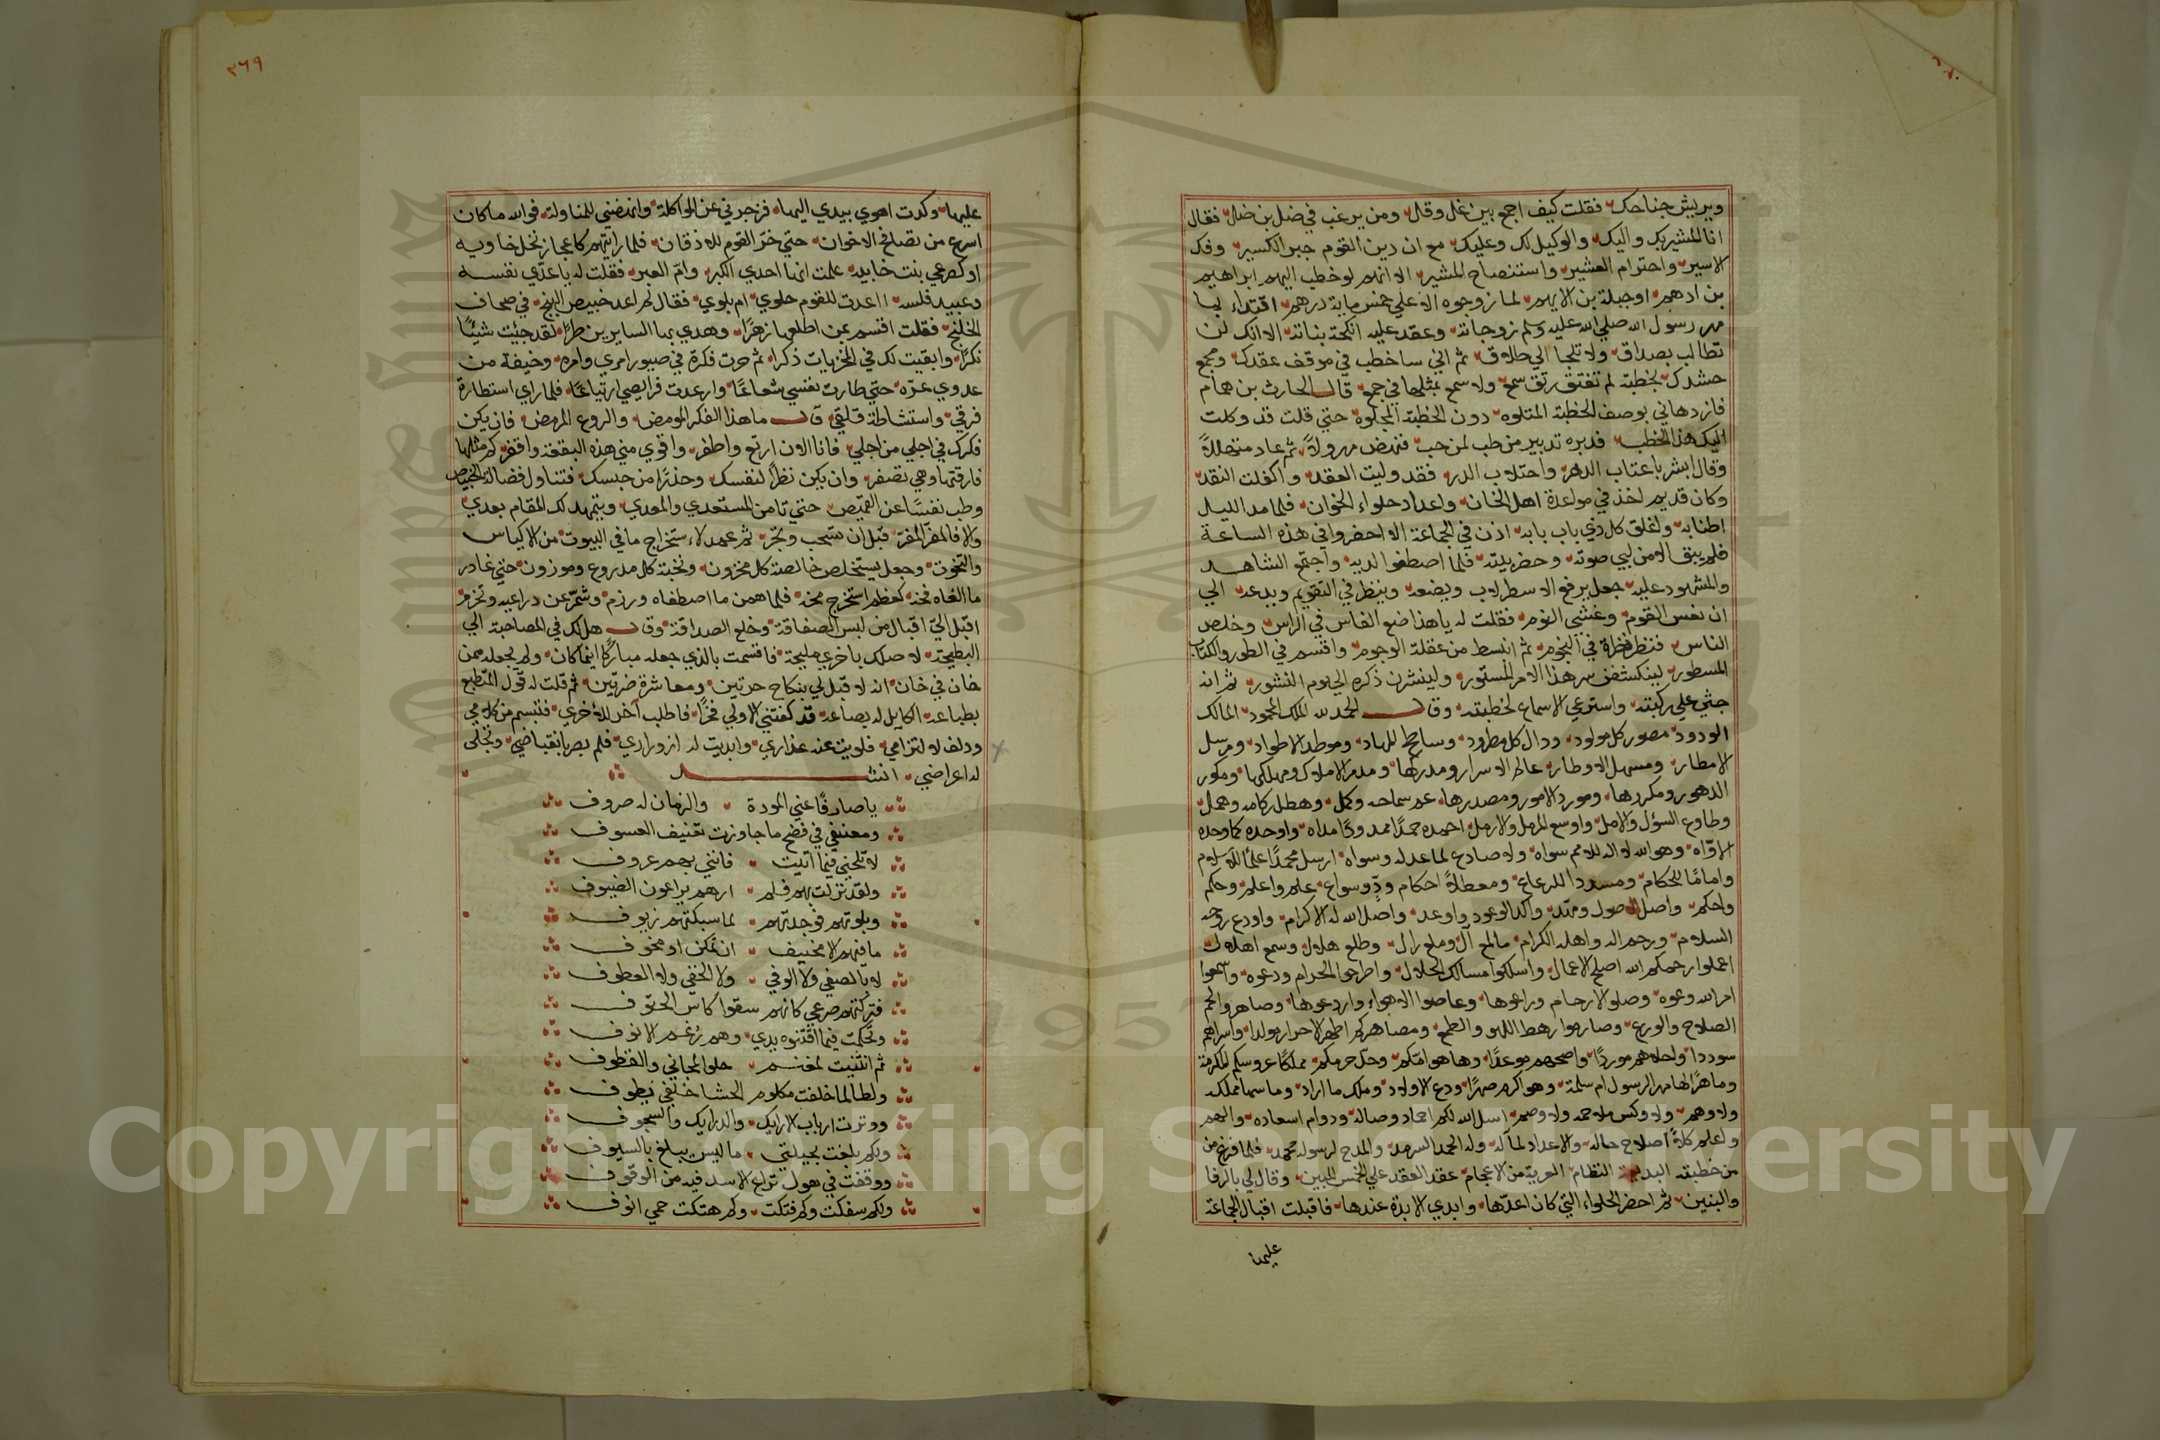 ويريش جناحك فقلت كيف اجمع بين غل وقل ومن يرغب في ضل بن ضل فقال
انا المشير بك واليك والوكيل لك وعليك مع ان دين القوم جبر الكسير وفك
الاسير واحترام العشير واستنصاح المشير الا انهم لو خطب اليهم ابراهيم
بن ادهم او جبلة بن الايهم لما زوجوه الا علي خمس ماية درهم اقتداء بما
مهر رسول الله صلي الله عليه وسلم زوجاته وعقد عليه انكحة بناته الا انك لن
تطالب بصداق ولا تلجا الي طلاق ثم اني ساخطب في موقف عقدك ومجمع
حشدك بخطبة لم تفتق رتق سمع ولا سمع بمثلها في جمع قال الحارث بن همام
فازدهاني بوصف الخطبة المتلوه دون الخطبة المجلوه حتي قلت قد وكلت
اليك هذا الخطب فدبره تدبير من طب لمن حب فنهض مهرولاً ثم عاد متهللاً
وقال ابشر باعتاب الدهر واحتلاب الدر فقد وليت العقد واكفلت النقد
وكان قد يم اخذ في مواعدة اهل الخان واعداد حلواء الخوان فلما مد الليل
اطنابه واغلق كل ذي باب بابه اذن في الجماعة الا احضروا في هذه الساعة
فلم يبق الا من لبي صوته وحضر بيته فلما اصطفوا لديه واجتمع الشاهد
والمشهود عليه جعل يرفع الاسطرلاب ويضعه وينظر في التقويم ويدعه الي
ان نعس القوم وغشي النوم فقلت له يا هذا ضع الفاس في الراس وخلص
الناس فنظر نظرة في النجوم ثم انبسط من عقلة الوجوم واقسم في الطور والكتاب
المسطور لينكشفن سر هذا الامر المستور ولينشرن ذكره الي يوم النشور ثم انه
جثي علي ركبته واسترعي الاسماع لخطبته وقال الحمد لله الملك المحمود المالك
الودود مصور كل مولود ودال كل مطرود وساطح المهاد وموطد الاطواد ومرسل
الامطار ومسهل الاوطار عالم الاسرار ومدركها ومدمر الاملاك ومهلكها ومكور
الدهور ومكررها ومورد الامور ومصدرها عم سماحه وكمل وهطل ركامه وهمل
وطاوع السؤل والامل واوسع المرمل والارمل احمده حمداً ممدوداً مداه واوحده كما وحده
الاوّاه وهو الله لا اله للامم سواه ولا صادع لما عدله وسواه ارسل محمداً علماً للاسلام
واماماً للحكام ومسدداً للرعاع ومعطلاً احكام ودٍّ وسواع علم واعلم وحكم
واحكم واصل الاصول ومهد واكد الوعود واوعد واصل الله له الاكرام واودع روحه
السلام ورحم اله واهله الكرام ما لمع آل وملع رال وطلع هلال وسمع اهلال
اعملوا رحمكم الله اصلح الاعمال واسلكوا مسالك الحلال واطرحوا الحرام ودعوه واسمعوا
امر الله وعوه وصلو الارحام وراعوها وعاصوا الاهواء واردعوها وصاهروا لحم
الصلاح والورع وصارموا رهط اللهو والطمع ومصاهركم اطهر الاحرار مولدا واسراهم
سوددا واحلاهم مورداً واصحهم موعداً وها هو امّكم وحلّ حرمكم مملكاً عروسكم المكرمة
وماهراً لها مهر الرسول ام سلمة وهو اكرم صهراً ودع الاولاد وملك ما اراد وما سها مملكه
ولا وهم ولا وكس ملاحمه ولا وصم اسل الله لكم احماد وصاله ودوام اسعاده والهم
واعلم كلاًّ اصلاح حاله والاعداد لمآله وله الحمد السرمد والمدح لرسوله محمد فلما فرغ من
من خطبته البديعة النظام العرية من الاعجام عقد العقد علي الخمس المبين وقال لي بالرفا
والبنين ثم احضر الحلواء التي كان اعدّها وابدي الابدة عندها فاقبلت اقبال الجماعة
عليها
٣٦٩
عليها وكدت اهوي بيدي اليها فزجرني عن المواكلة وانهضني للمناولة فوالله ما كان
اسرع من تصافح الاخوان حتي خرّ القوم للاذقان فلما رايتهم كاعجاز نخل خاويه
او كصرعي بنت خابيه علمت انها احدي الكبر وامّ العبر فقلت له يا عدّي نفسه
وعبيد فلسه ااعدت للقوم حلوي ام بلوي فقال لم اعد خبيص البنج في صحاف
الخلنج فقلت اقسم بمن اطلعها زهراً وهدي بها السايرين طراً لقد جئت شيئاً
نكراً وابقيت لك في المخزيات ذكرا ثم حرت فكرة في صيور امري وامره وخيفة من
عدوي عره حتي طارت نفسي شعاعاً وارعدت فرايصي ارتياعاً فلما راي استطارة
فرقي واستشاطة قلقي قال ما هذا الفكر المومض والروع المرمض فان يكن
فكرك في اجلي من اجلي فانا الان ارتع واطفر واقوي مني هذه البقعة واقفر كم مثلها
فارقتها وهي تصفر وان يكن نظراً لنفسك وحذراً من حبسك فتناول فضالة الخبيص
وطب نفساً عن القميص حتي تامن المستعدي والمعدي ويتمهد لك المقام بعدي
والا فالمفرّ المفرّ قبل ان تسحب وتجرّ ثم عمد لاستخراج ما في البيوت من الاكياس
والتخوت وجعل يستخلص خالصة كل مخزون ونخبة كل مدروع وموزون حتي غادر
ما الغاه فخه كعظم استخرج مخه فلما همن ما اصطفاه ورزم وشمّر عن ذراعيه وتحزم
اقبل اليّ اقبال من لبس الصفاقة وخلع الصداقة وقال هل لك في المصاحبة الي
البطيحة لاصلك باخري مليحة فاقسمت بالذي جعله مباركاً اينما كان ولم يجعله ممن
خان في خان انه لا قبل لي بنكاح حرتين ومعاشرة ضرّتين ثم قلت له قول المتطبع
بطباعه الكايل له بصاعه قد كفتني الاولي فخراً فاطلب آخر للاخري فتبسم من كلامي
ودلف لالتزامي فلويت عنه عذاري وابديت له ازوراري فلم بصر بانقباضي وتجلّى
له اعراضي انشد
يا صادفاً عني المودة والزمان له صروف
ومعنفي في فضح ما جاوزت تعنيف العسوف
لا تلحني فيما اتيت فانني بهم عروف
ولقد نزلت بهم فلم ارهم يراعون الضيوف
وبلوتهم فوجدتهم لما سبكتهم زيوف
ما فيهم الا مخيف ان تمكن او مخوف
لا بالصفي ولا الوفي ولا الحفي ولا العطوف
فتركتهم صرعي كانهم سقوا كاس الحتوف
وتحكمت فيما اقتنوه يدي وهم رُغم الانوف
ثم انثنيت لمغنم حلو المجاني والقطوف
ولطالما خلفت مكلوم الحشا خلفي يطوف
ووترت ارباب الارايك والدرانيك والسجوف
ولكم بلغت بحيلتي ما ليس يبلغ بالسيوف
ووقفت في هول تراع الاسد فيه من الوقوف
ولكم سفكت وكم فتكت وكم هتكت حمي انوف
Copyright © King Saud University
1957